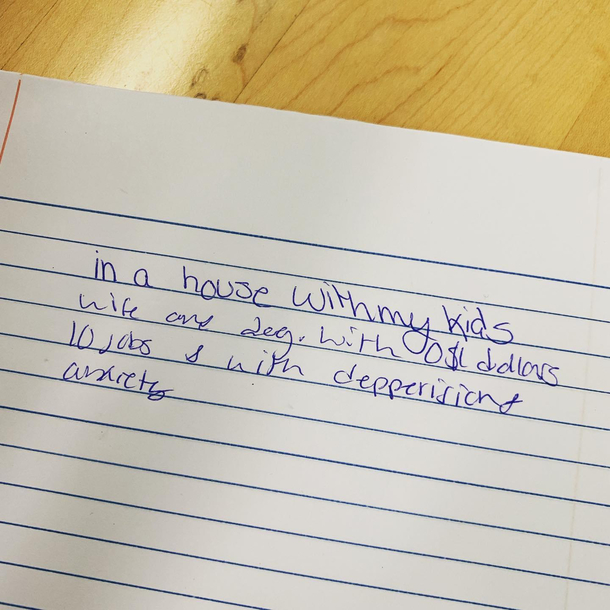 in a house with my kids
wife and deg. with 0$ dollars
10 jobs & with depperisiong
anxiety